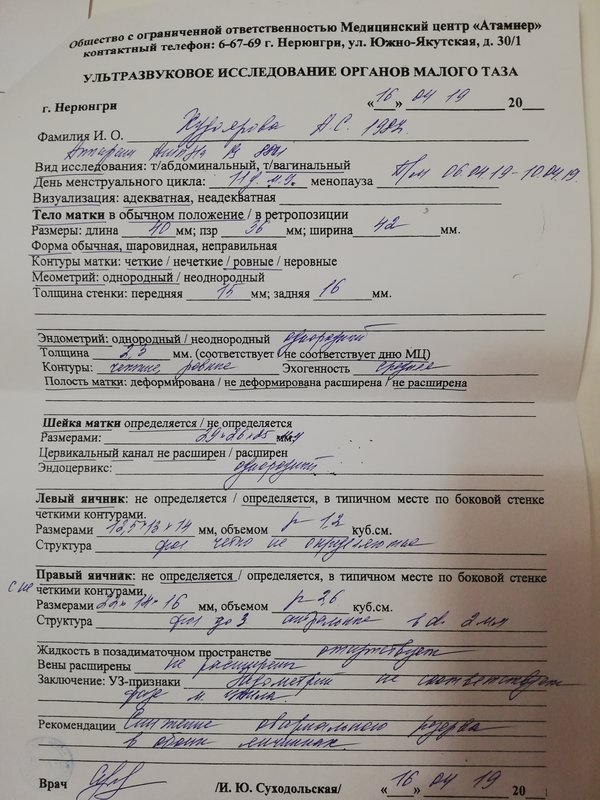 Общество с ограниченной ответственностью Медицинский центр «Атамнер»
контактный телефон: 6-67-69 г. Нерюнгри, ул. Южно-Якутская, д. 30/1
УЛЬТРАЗВУКОВОЕ ИССЛЕДОВАНИЕ ОРГАНОВ МАЛОГО ТАЗА
г. Нерюнгри «16» 04 19 20
Фамилия И. О. Кудоярова А.С.
Вид исследования: т/абдоминальный, т/вагинальный
День менструального цикла: 11 д.м.ц. менопауза П/м 06.04.19-10.04.19.
Визуализация: адекватная, неадекватная
Тело матки в обычном положение / в ретропозиции
Размеры: длина 40 мм; пзр 36 мм; ширина 42 мм.
Форма обычная, шаровидная, неправильная
Контуры матки: четкие / нечеткие / ровные / неровные
Меометрий: однородный / неоднородный
Толщина стенки: передняя 15 мм; задняя 16 мм.
Эндометрий: однородный / неоднородный однородный
Толщина 2,5 мм. (соответствует / не соответствует дню МЦ)
Контуры: четкие, ровные Эхогенность средняя
Полость матки: деформирована / не деформирована расширена / не расширена
Шейка матки определяется / не определяется
Размерами: 29×26×25 мм
Цервикальный канал не расширен / расширен
Эндоцервикс: однородный
Левый яичник: не определяется / определяется, в типичном месте по боковой стенке
четкими контурами.
Размерами 12,5×13×14 мм, объемом 1,2 куб.см.
Структура фол четко не определяются
Правый яичник: не определяется / определяется, в типичном месте по боковой стенке
с не четкими контурами.
Размерами 22×14×16 мм, объемом 2,6 куб.см.
Структура фол до 3 антральные в d 2 мм
Жидкость в позадиматочном пространстве отсутствует
Вены расширены не расширены
Заключение: УЗ-признаки Эндометрий не соответствует
фазе м. цикла.
Рекомендации Снижение овариального резерва
в обоих яичниках.
Врач /И. Ю. Суходольская/ «16» 04 19 20